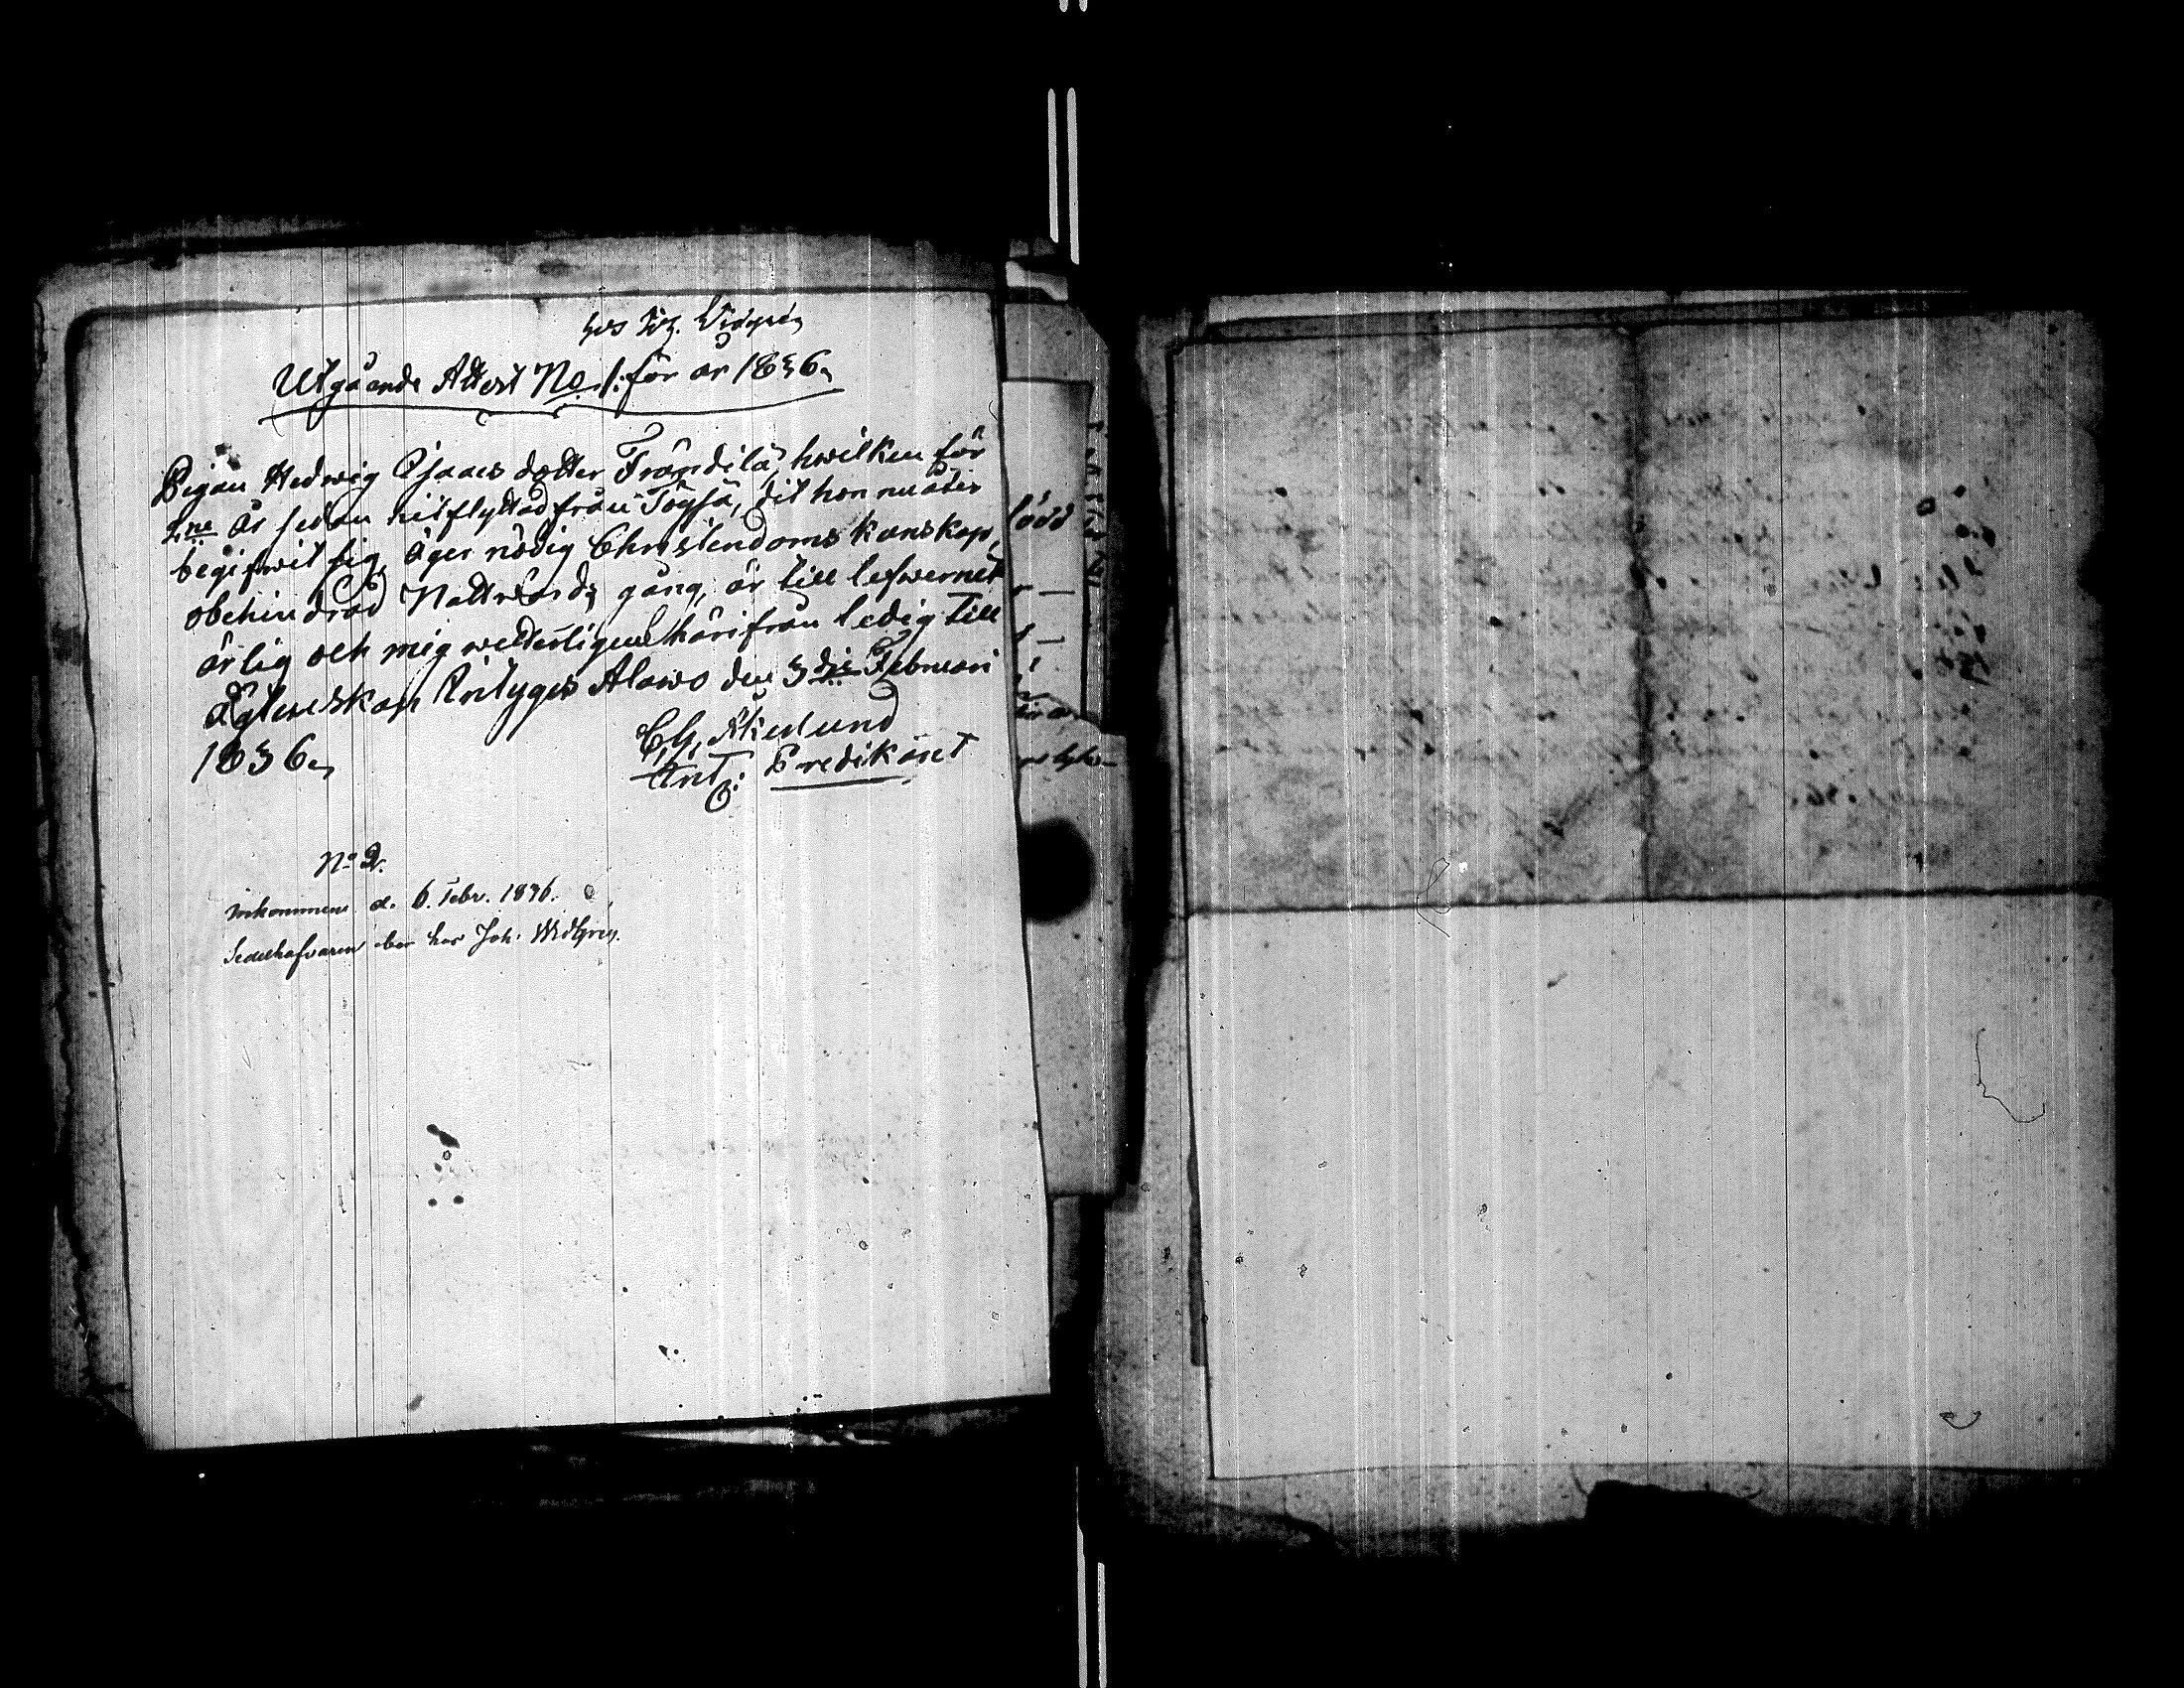 hos Joh. Widgrén
Utgående Attest No. 1. för år 1836.
Pigan Hedwig Isaacs dotter Frändilä, hwilken för
2ne år sedan hitflyttad från Töysä, dit hon nu åter
begifwit sig, äger nödig Christendoms kunskap,
obehindrad Nattwards gång, är till lefwernet
ärlig och mig wetterligen härifrån ledig till
Ägtenskap. Intygas Alawo den 3die Februari
1836.
Predikant
No 2.
inkommen d. 6. Febr. 1836.
Sedelhafvaren bor hos Joh. Widgrén.
född